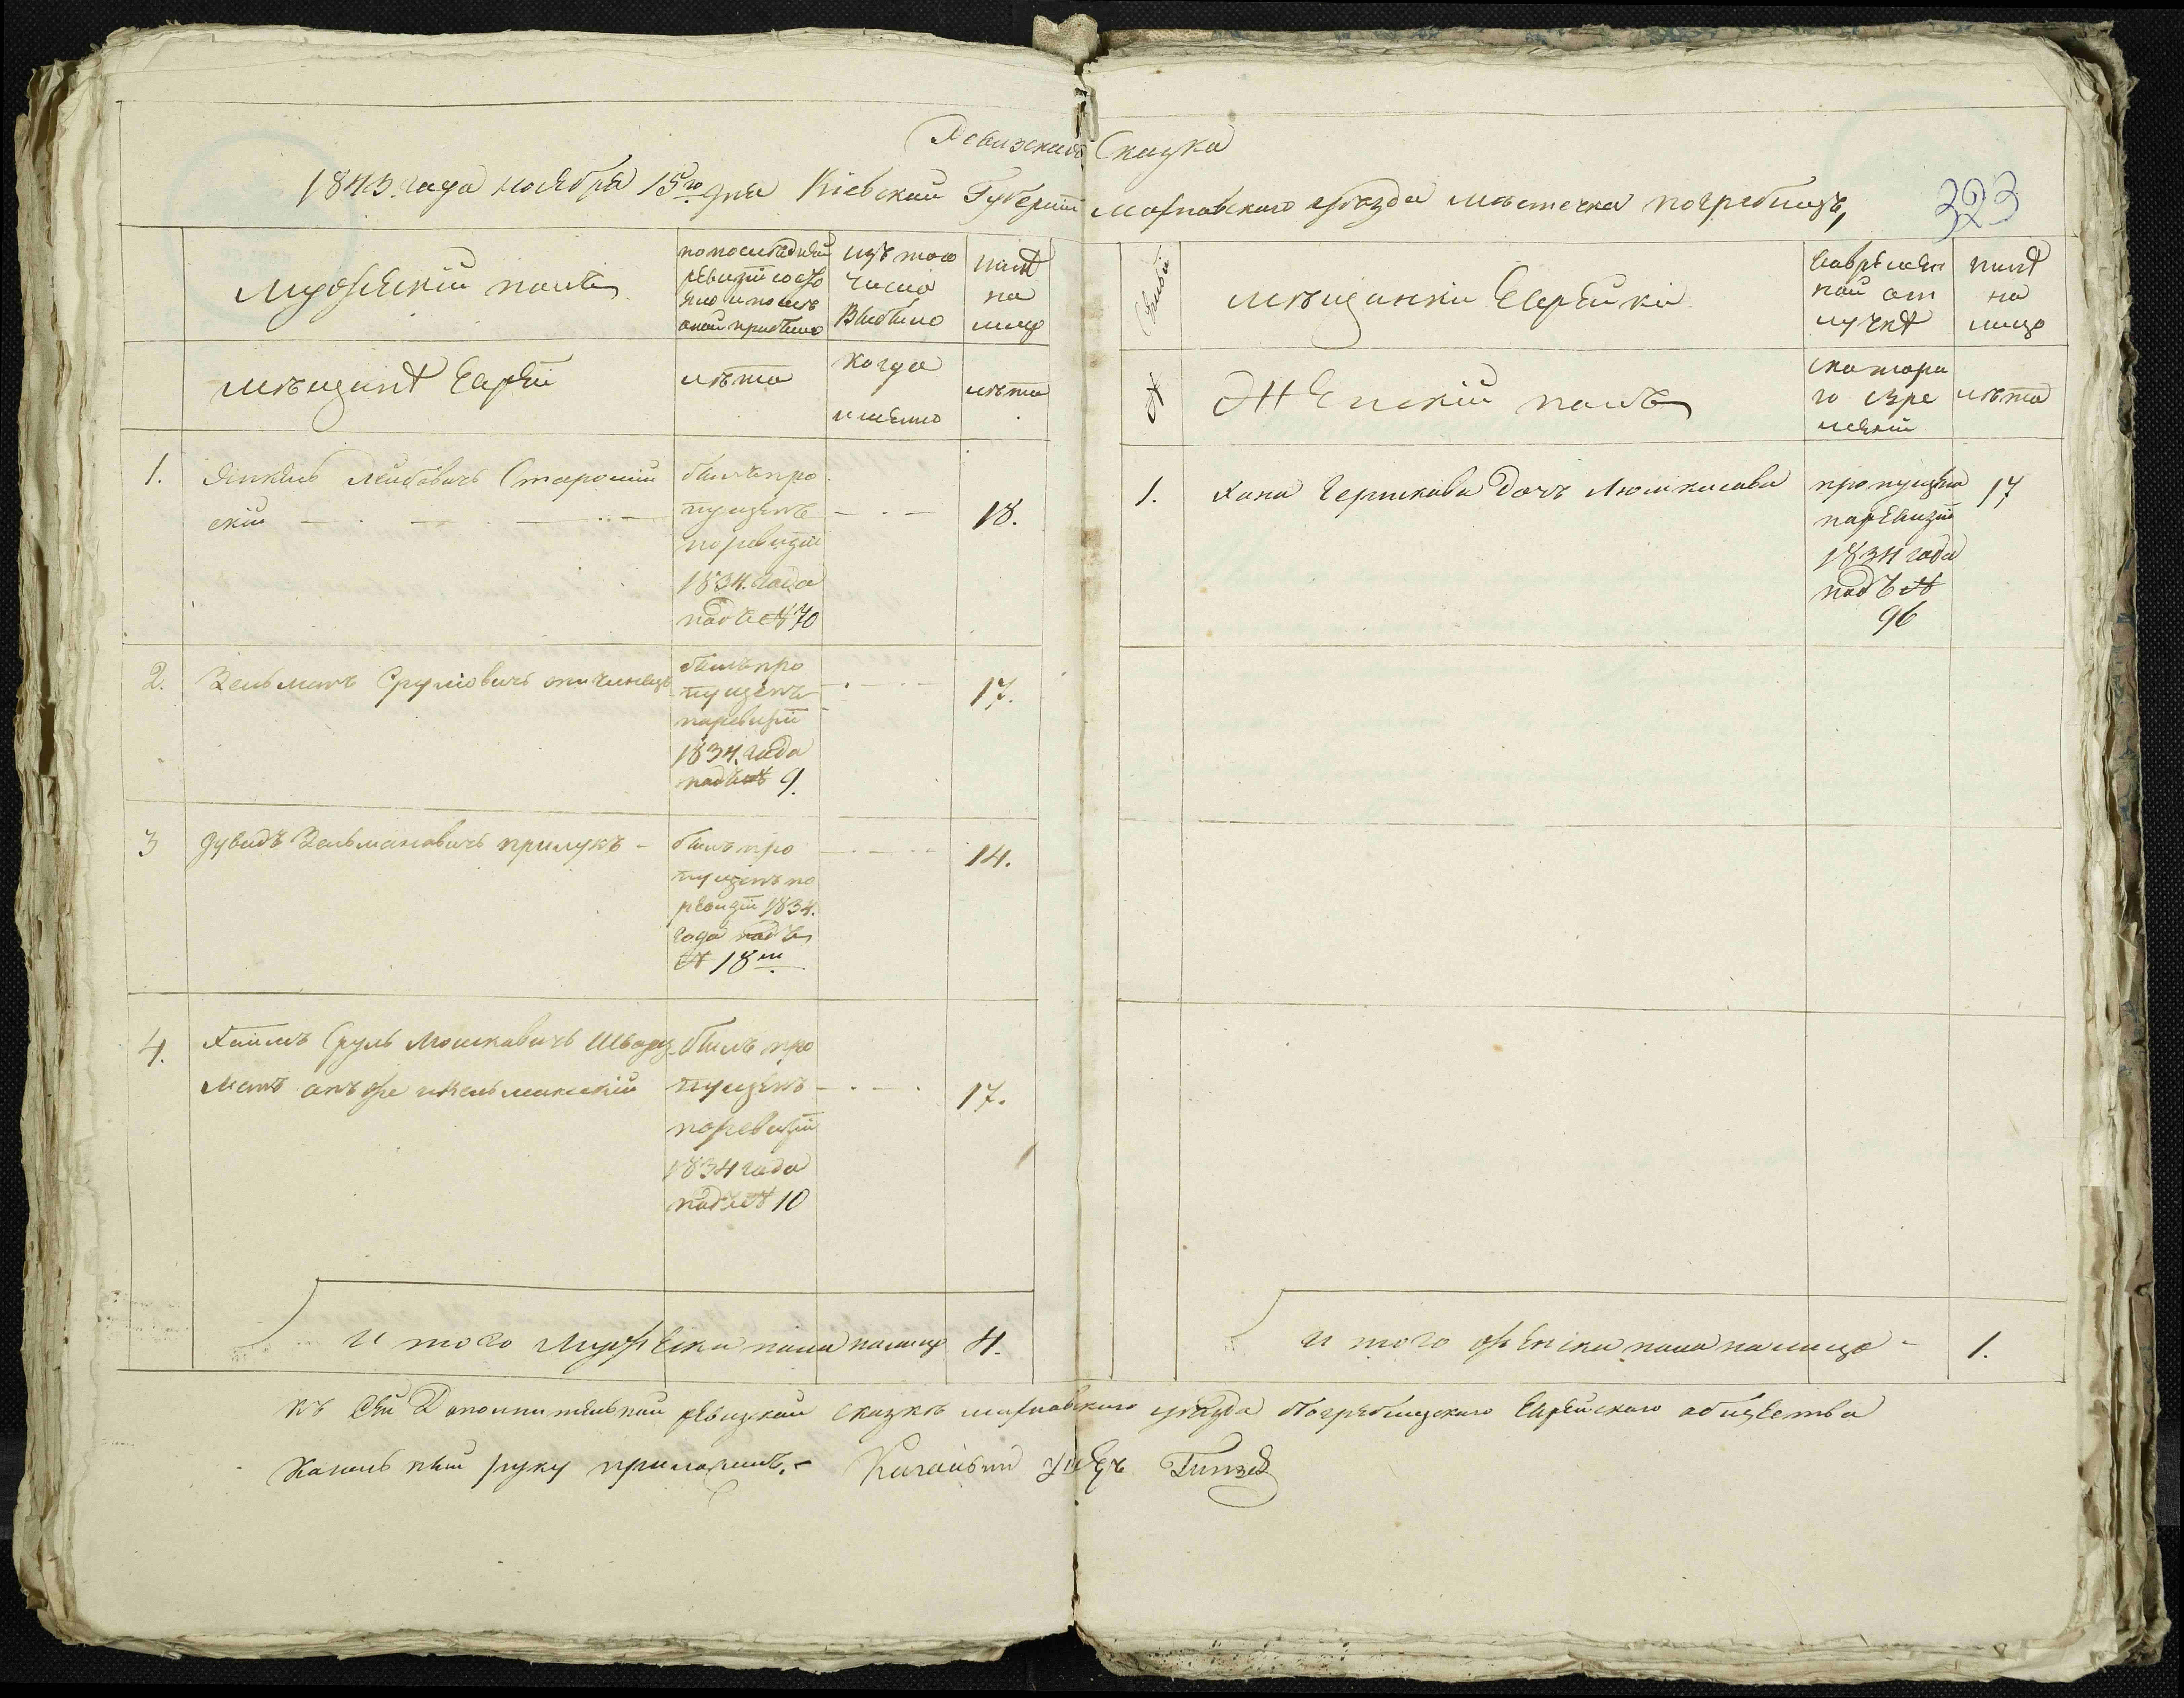 Ревизская Сказка
1843 года ноября 15го дня Кіевской Губерніи Махновскаго уѣзда мѣстечка погребищъ,
323
Мужескій полъ
по последней
ревизіи состо
яло и после
оной прибыло
изъ того
числа
выбыло
нынѣ
на
лицо
мѣщанѣ Евреи
лѣта
когда
именно
лѣта
1. Янкель Лейбовичъ Старошин
скій
былъ про
пущенъ
по ревизіи
1834. года
подъ № 70
18.
2. Зельманъ Сруліовичъ
былъ про
пущенъ
по ревизіи
1834. года
подъ № 9.
17.
3 Дувидъ Зельмановичъ прилукъ
былъ про
пущенъ по
ревизіи 1834.
года подъ
№ 18м
14.
4. Хаимъ Сруль Мошковичъ Шварц
манъ онъ же
былъ про
пущенъ
по ревизіи
1834 года
подъ № 10
17.
и того Мужеска пола налицо 4.
мѣщанки Еврейки
во временной от
лучкѣ
нынѣ
на
лицо
№
Женскій полъ
с котора
го вре
мени
лѣта
1. Хана Гершкова дочь
пропущена
по ревизіи
1834 года
подъ №
96
17
и того женска пола налицо 1.
къ сей Дополнительной ревизской сказкѣ махновскаго уѣзда Погребищскаго Еврейскаго общества
Кагальный руку приложилъ.